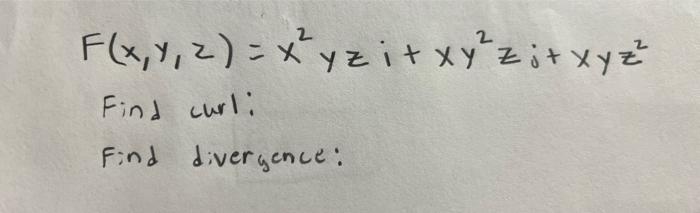 F(x,y,z) = x²yz i + xy²z j + xyz²
Find curl:
Find divergence: